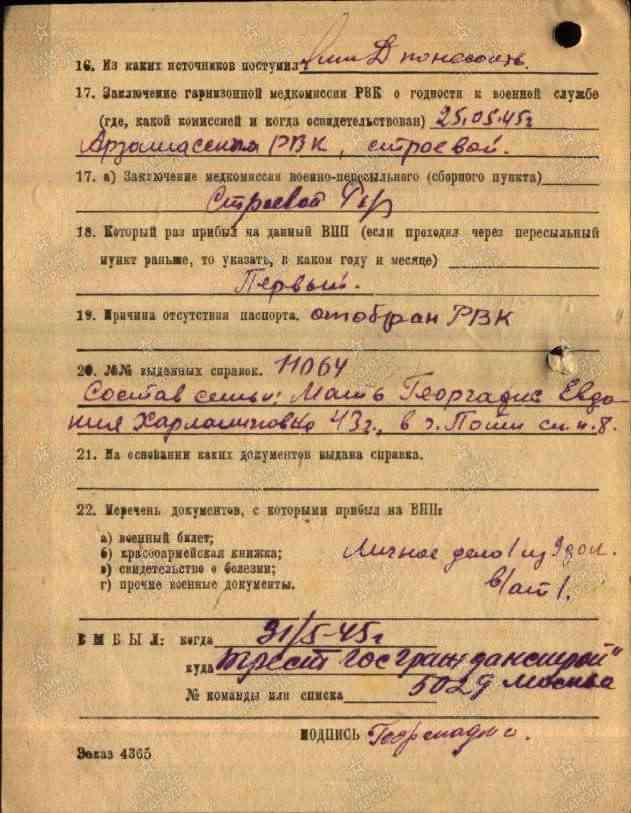 16. Из каких источников поступил
17. Заключение гарнизонной медкомиссии РВК о годности к военной службе
(где, какой комиссией и когда освидетельствован) 25.05.45г
РВК, строевой.
17. а) Заключение медкомиссии военно-пересыльного (сборного пункта)
Строевой
18. Который раз прибыл на данный ВПП (если проходил через пересыльный
пункт раньше, то указать, в каком году и месяце)
Первый.
19. Причина отсутствия паспорта. отобран РВК
20. №№ выданных справок. 11064
Состав семьи: Мать Георгадис Евдо-
кия 43г., в г. Поти 8.
21. На основании каких документов выдана справка.
22. Перечень документов, с которыми прибыл на ВПП:
а) военный билет;
б) красноармейская книжка;
в) свидетельство о болезни;
г) прочие военные документы.
Личное дело 1 из 9 док.
в/ат 1.
ВЫБЫЛ: когда 31/5-45г
куда трест Госгражданстрой"
№ команды или списка 5029 Москва
ПОДПИСЬ
Заказ 4365